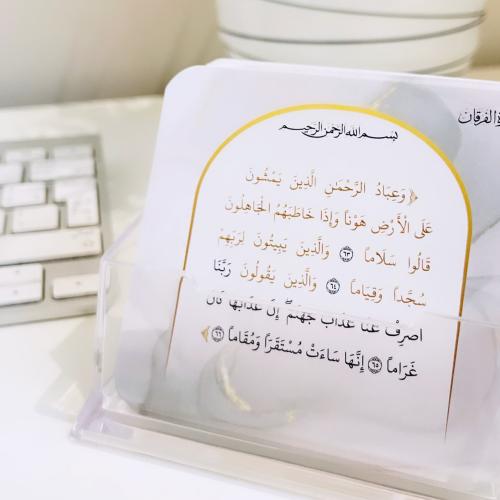 الفرقان
بسم الله الرحمن الرحيم
﴿وَعِبَادُ الرَّحْمَٰنِ الَّذِينَ يَمْشُونَ
عَلَى الْأَرْضِ هَوْنًا وَإِذَا خَاطَبَهُمُ الْجَاهِلُونَ
قَالُوا سَلَامًا ۝٦٣ وَالَّذِينَ يَبِيتُونَ لِرَبِّهِمْ
سُجَّدًا وَقِيَامًا ۝٦٤ وَالَّذِينَ يَقُولُونَ رَبَّنَا
اصْرِفْ عَنَّا عَذَابَ جَهَنَّمَ ۖ إِنَّ عَذَابَهَا كَانَ
غَرَامًا ۝٦٥ إِنَّهَا سَاءَتْ مُسْتَقَرًّا وَمُقَامًا ۝٦٦﴾